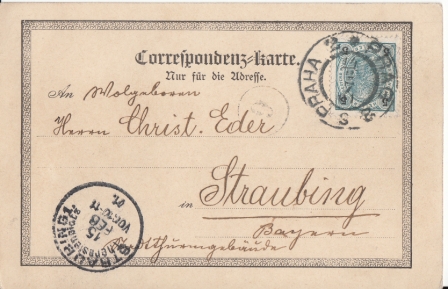 Correspondenz-Karte.
Nur für die Adresse.
An Wolgeboren
Herrn Christ. Eder
in Straubing
Bayern
Stadtthurmgebäude
PRAHA PRAG
STRAUBING 1
15
FEB
VOR 10-11
01